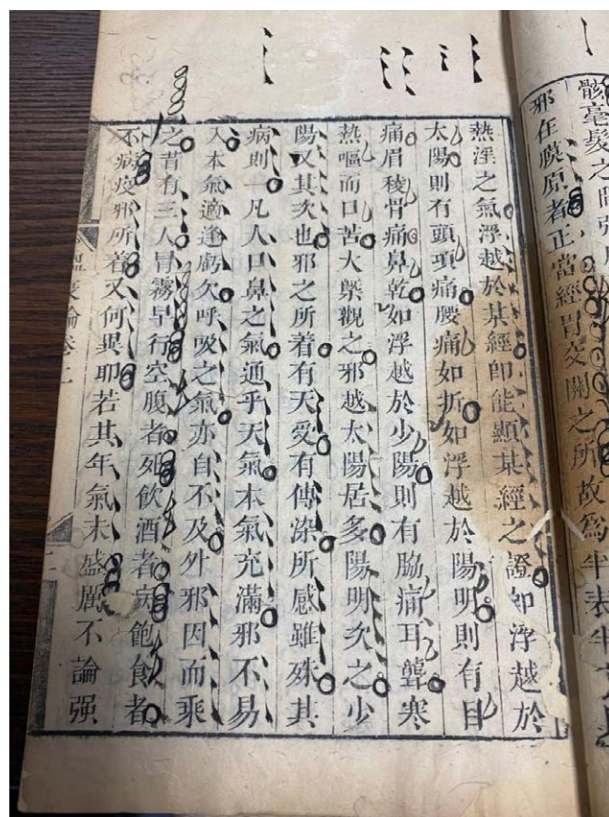 骸毫髮之間
邪在膜原者正當經胃交關之所故爲半表半
熱淫之氣浮越於某經即能顯某經之證如浮越於
太陽則有頭項痛腰痛如折如浮越於陽明則有目
痛眉稜骨痛鼻乾如浮越於少陽則有脇痛耳聾寒
熱嘔而口苦大槩觀之邪越太陽居多陽明次之少
陽又其次也邪之所着有天受有傳染所感雖殊其
病則一凡人口鼻之氣通乎天氣本氣充滿邪不易
入本氣適逢虧欠呼吸之氣亦自不及外邪因而乘
之昔有三人冒霧早行空腹者死飲酒者病飽食者
不病疫邪所着又何異耶若其年氣來盛厲不論强
溫疫論卷上